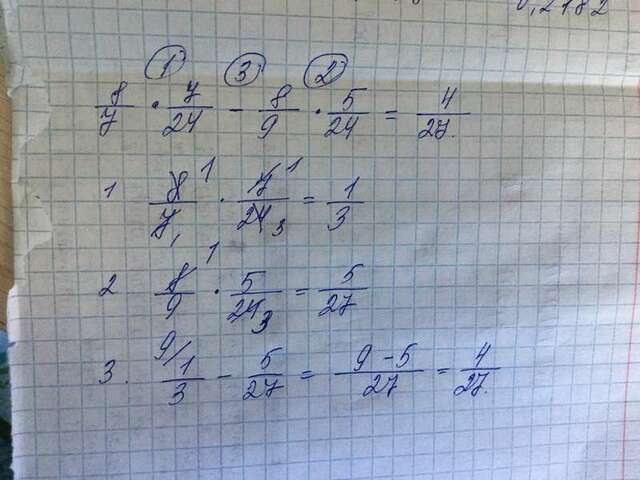 0,2182
1 3 2
8/7 · 7/24 - 8/9 · 5/24 = 4/27.
1 8/7 1 1 · 7/24 1 3 = 1/3
2 8/9 1 · 5/24 3 = 5/27
3. 9/ 1/3 - 5/27 = 9-5/27 = 4/27.